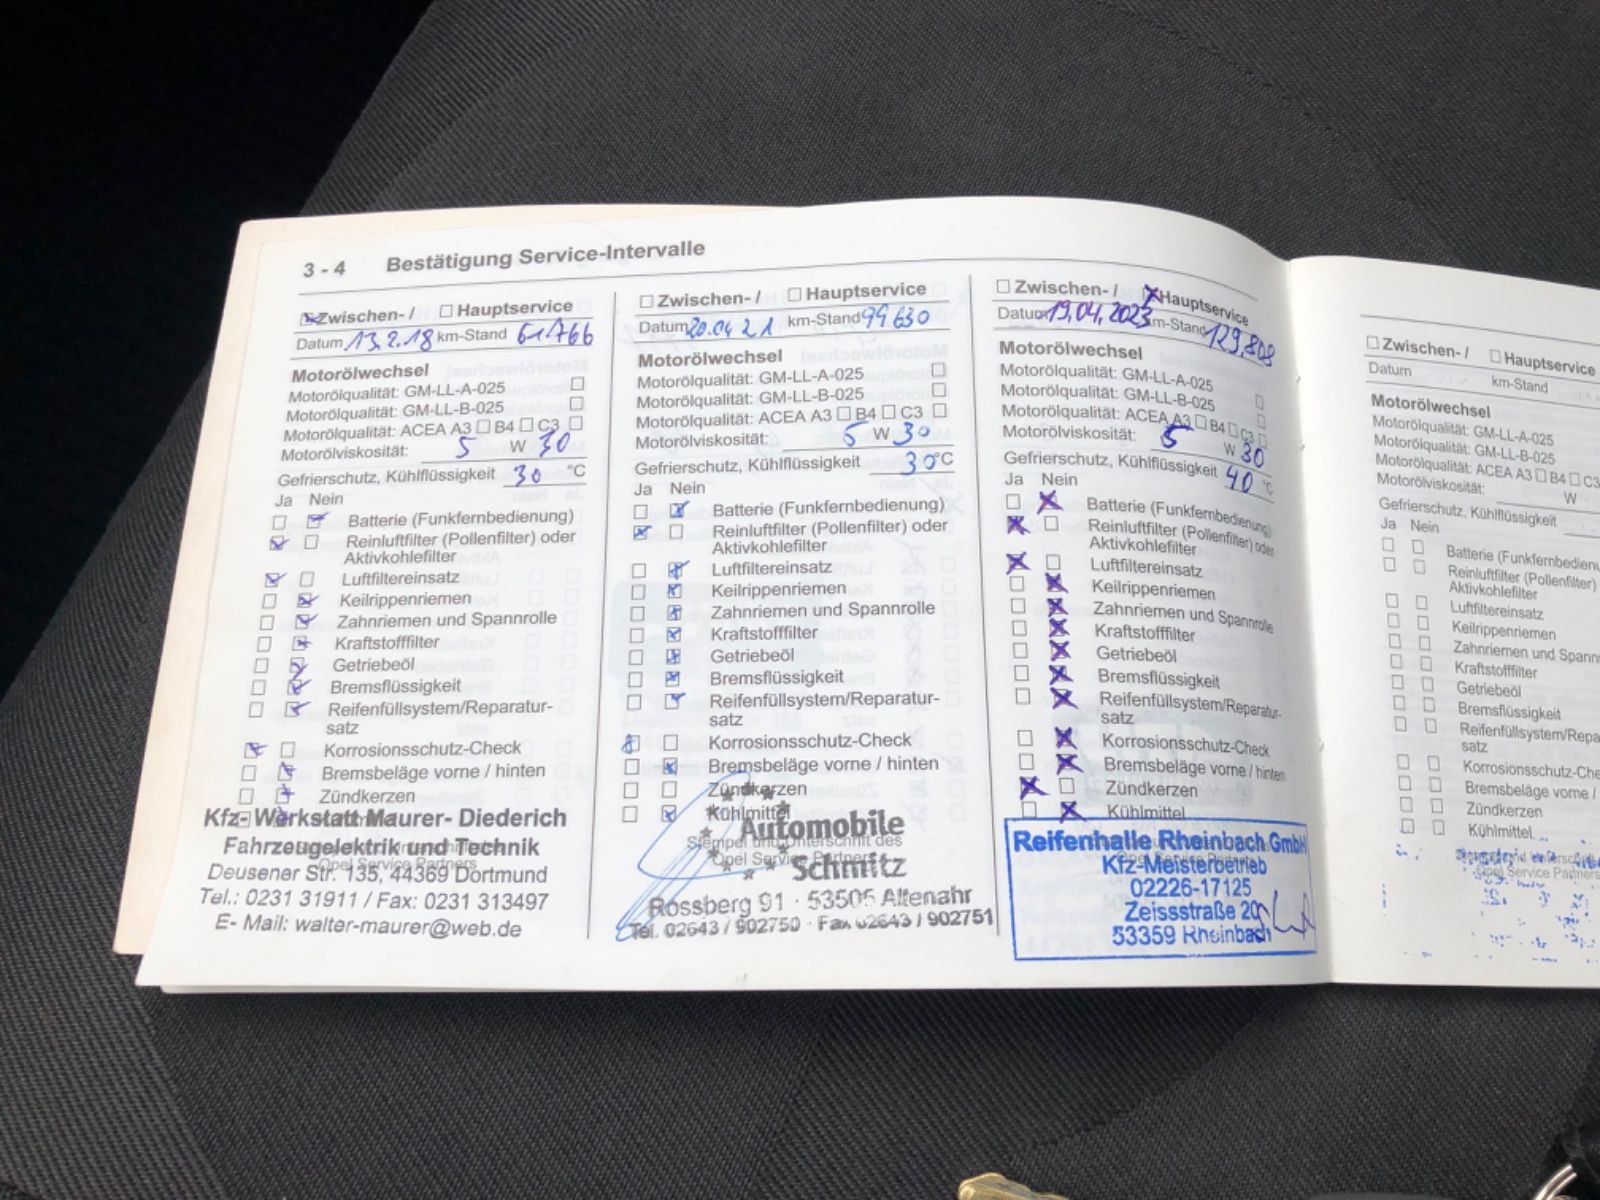 3 - 4 Bestätigung Service-Intervalle
Zwischen- / Hauptservice
Datum 13.2.18 km-Stand 61.766
Motorölwechsel
Motorölqualität: GM-LL-A-025
Motorölqualität: GM-LL-B-025
Motorölqualität: ACEA A3 B4 C3
Motorölviskosität: 5 W 30
Gefrierschutz, Kühlflüssigkeit 30 °C
Ja Nein
Batterie (Funkfernbedienung)
Reinluftfilter (Pollenfilter) oder
Aktivkohlefilter
Luftfiltereinsatz
Keilrippenriemen
Zahnriemen und Spannrolle
Kraftstofffilter
Getriebeöl
Bremsflüssigkeit
Reifenfüllsystem/Reparatur-
satz
Korrosionsschutz-Check
Bremsbeläge vorne / hinten
Zündkerzen
Kfz- Werkstatt Maurer- Diederich
Fahrzeugelektrik und Technik
Opel Service Partners
Deusener Str. 135, 44369 Dortmund
Tel.: 0231 31911 / Fax: 0231 313497
E- Mail: walter-maurer@web.de
Zwischen- / Hauptservice
Datum 20.04 21 km-Stand 99630
Motorölwechsel
Motorölqualität: GM-LL-A-025
Motorölqualität: GM-LL-B-025
Motorölqualität: ACEA A3 B4 C3
Motorölviskosität: 5 W 30
Gefrierschutz, Kühlflüssigkeit 30 °C
Ja Nein
Batterie (Funkfernbedienung)
Reinluftfilter (Pollenfilter) oder
Aktivkohlefilter
Luftfiltereinsatz
Keilrippenriemen
Zahnriemen und Spannrolle
Kraftstofffilter
Getriebeöl
Bremsflüssigkeit
Reifenfüllsystem/Reparatur-
satz
Korrosionsschutz-Check
Bremsbeläge vorne / hinten
Zündkerzen
Kühlmittel
Automobile
Stempel und Unterschrift des
Opel Service Partners
Schmitz
Rossberg 91 · 53505 Altenahr
Tel. 02643 / 902750 · Fax 02643 / 902751
Zwischen- / Hauptservice
Datum 19.04.2023 km-Stand 129.808
Motorölwechsel
Motorölqualität: GM-LL-A-025
Motorölqualität: GM-LL-B-025
Motorölqualität: ACEA A3 B4 C3
Motorölviskosität: 5 W 30
Gefrierschutz, Kühlflüssigkeit 40 °C
Ja Nein
Batterie (Funkfernbedienung)
Reinluftfilter (Pollenfilter) oder
Aktivkohlefilter
Luftfiltereinsatz
Keilrippenriemen
Zahnriemen und Spannrolle
Kraftstofffilter
Getriebeöl
Bremsflüssigkeit
Reifenfüllsystem/Reparatur-
satz
Korrosionsschutz-Check
Bremsbeläge vorne / hinten
Zündkerzen
Kühlmittel
Reifenhalle Rheinbach GmbH
Kfz-Meisterbetrieb
02226-17125
Zeissstraße 20
53359 Rheinbach
Zwischen- / Hauptservice
Datum km-Stand
Motorölwechsel
Motorölqualität: GM-LL-A-025
Motorölqualität: GM-LL-B-025
Motorölqualität: ACEA A3 B4 C3
Motorölviskosität: W
Gefrierschutz, Kühlflüssigkeit
Ja Nein
Batterie (Funkfernbedienu
Reinluftfilter (Pollenfilter)
Aktivkohlefilter
Luftfiltereinsatz
Keilrippenriemen
Zahnriemen und Spann
Kraftstofffilter
Getriebeöl
Bremsflüssigkeit
Reifenfüllsystem/Repa
satz
Korrosionsschutz-Che
Bremsbeläge vorne /
Zündkerzen
Kühlmittel
Opel Service Partners